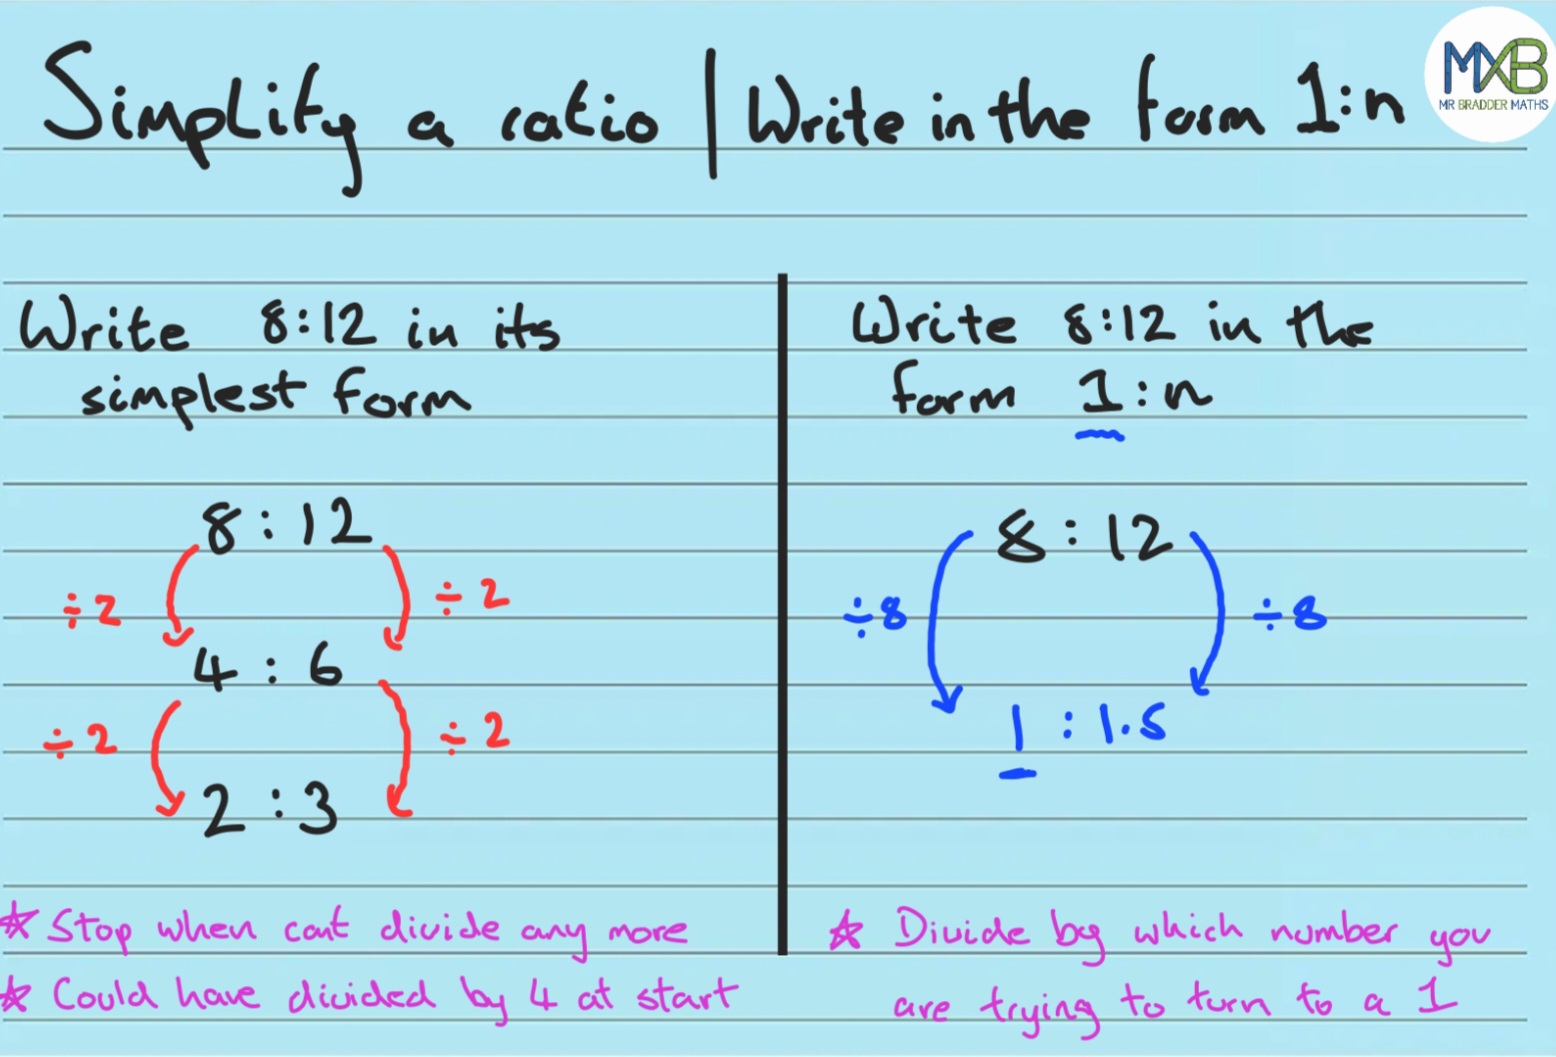 Simplify a ratio | Write in the form 1:n
MXB
MR BRADDER MATHS
Write 8:12 in its
simplest form
8 : 12
÷2 ÷2
4 : 6
÷2 ÷2
2 : 3
* Stop when cant divide any more
* Could have divided by 4 at start
Write 8:12 in the
form 1:n
8 : 12
÷8 ÷8
1 : 1.5
* Divide by which number you
are trying to turn to a 1